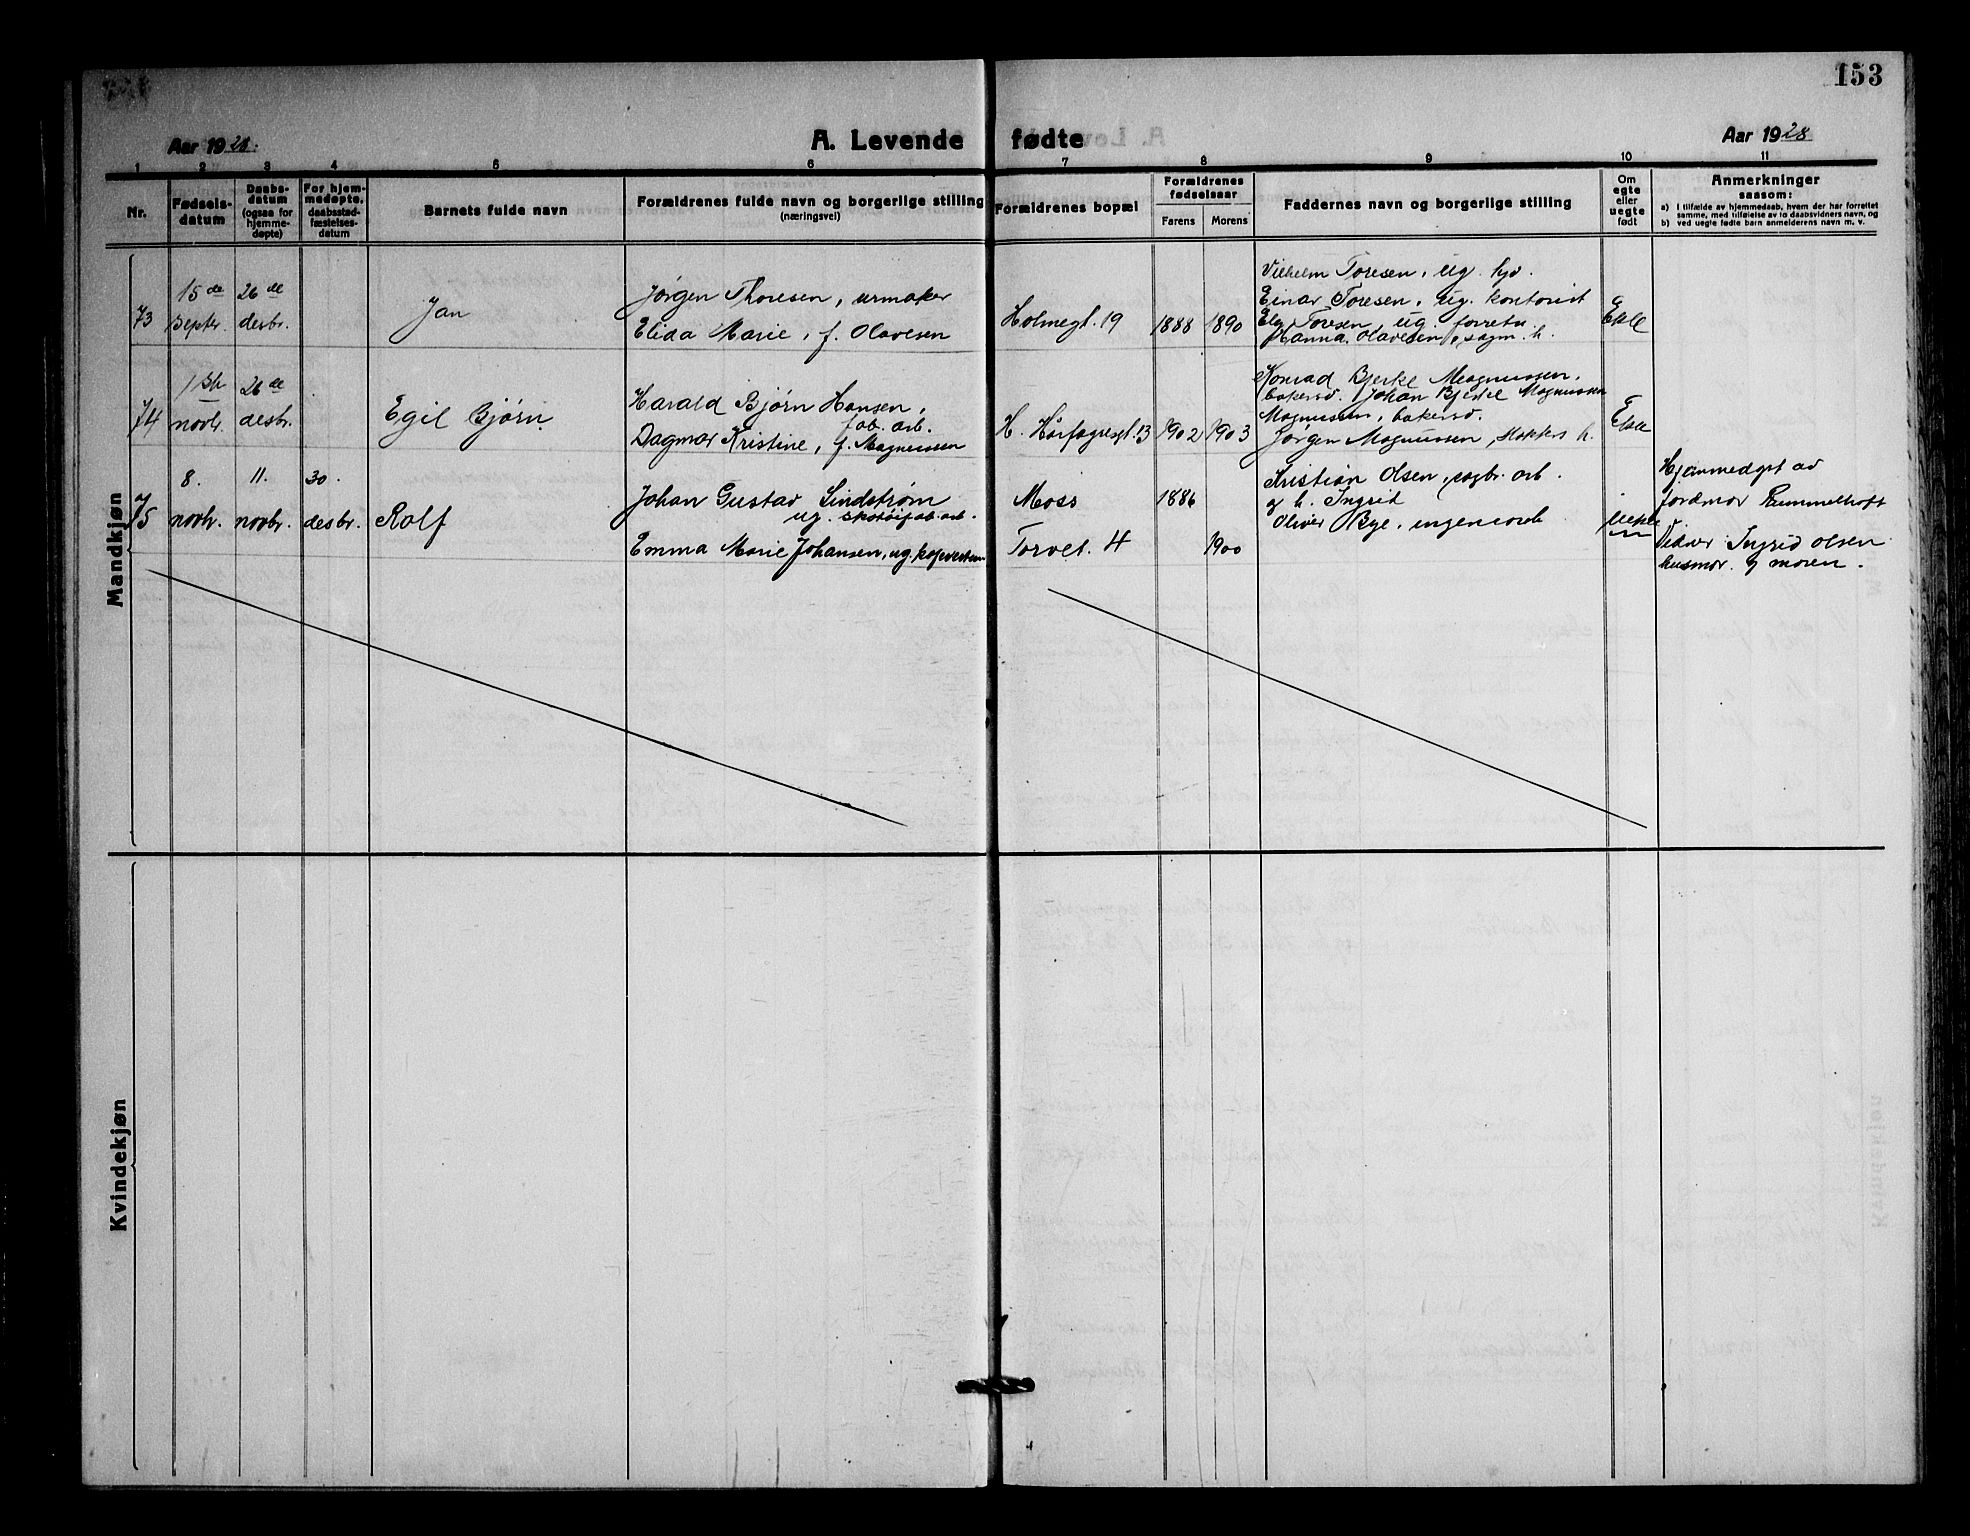 153
Aar 1928.
A. Levende fødte
Aar 1928
1 2 3 4 5 6 7 8 9 10 11
Nr.
Fødselsdatum
Daabsdatum (ogsaa for hjemmedøpte)
For hjemmedøpte, daabsstadfæstelsesdatum
Barnets fulde navn
Forældrenes fulde navn og borgerlige stilling
(næringsvei)
Forældrenes bopæl
Forældrenes fødselsaar
Farens
Morens
Faddernes navn og borgerlige stilling
Om egte eller uegte født
Anmerkninger
saasom:
a) I tilfælde av hjemmedaab, hvem der har forrettet
samme, med tilføielse av to daabsvidners navn, og
b) ved uegte fødte barn anmelderens navn m. v.
Mandkjøn
73
15de septr.
26de desbr.
Jan
Jørgen Thoresen, urmaker
Elida Marie, f. Olavesen
Holmegt. 19
1888
1890
Vilhelm Toresen, ug.
Einar Toresen, ug. kontorist
Toresen ug.
Hanna Olavesen, sagm. h.
Ekte
74
1ste novbr.
26de desbr.
Egil Bjørn
Harald Bjørn Hansen,
fab. arb.
Dagmar Kristine, f. Magnussen
H. Hårfagresgt. 13
1902
1903
Konrad Bjerke Magnussen,
bakersv. Johan Bjerke Magnussen
Magnussen, bakersv.
Jørgen Magnussen, h.
Ekte
75
8. novbr.
11. novbr.
30. desbr.
Rolf
Johan Gustav Lindstrøm
ug. skotøifab. arb.
Emma Marie Johansen, ug.
Moss
Torvet. 4
1886
1900
Kristian Olsen, arb.
og h. Ingrid
Oliver Bye, ingeniør
Uekte
Hjemmedøpt av
jordmor Rummelhoft
Vidner Ingrid Olsen
husmor og moren.
Kvindekjøn